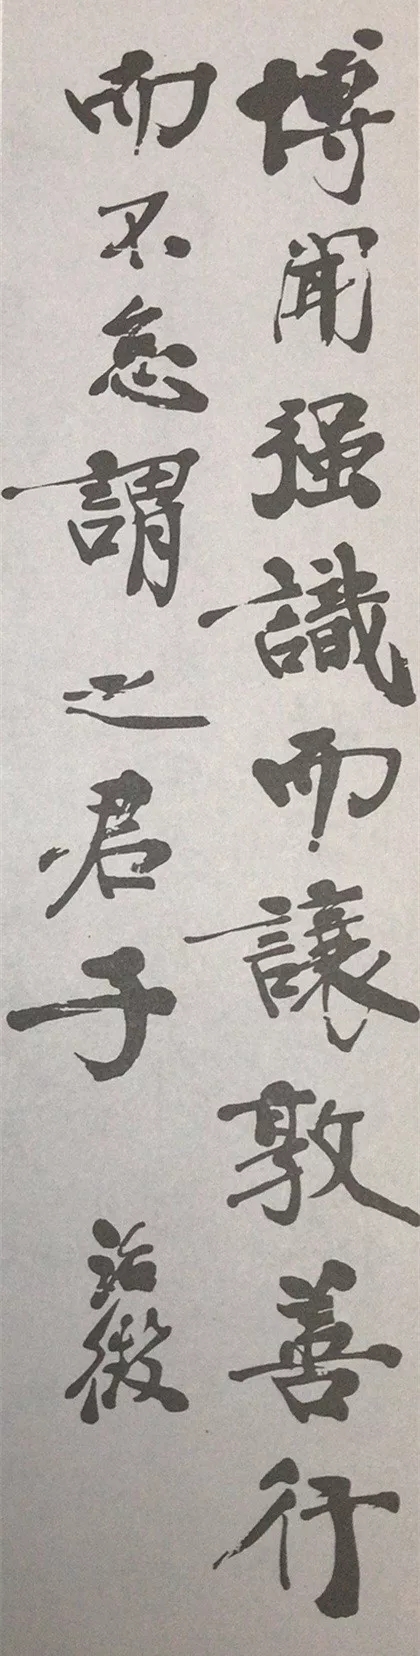 博聞强識而讓敦善行
而不怠謂之君子